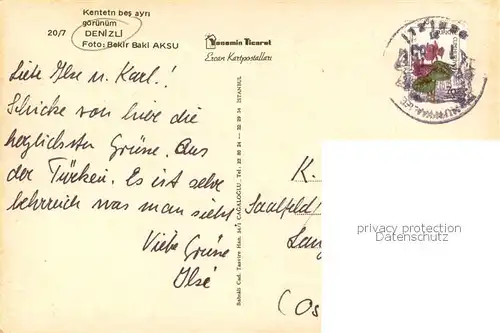 Kentetn beş ayrı
görünüm
20/7 DENİZLİ
Foto: Bekir Baki AKSU
Yonomin Ticaret
Ercan Kartpostalları
Liebe Ilse u. Karl!
Schicke von hier die
herzlichsten Grüsse. Aus
der Türkei. Es ist sehr
lehrreich was man sieht
Viele Grüsse
Ilse
Babıali Cad. Tasvire Han. 34/1 CAĞALOĞLU. Tel: 22 80 24 — 22 29 34 İSTANBUL
K.
Saalfeld/
Lan
(Os
privacy protection
Datenschutz